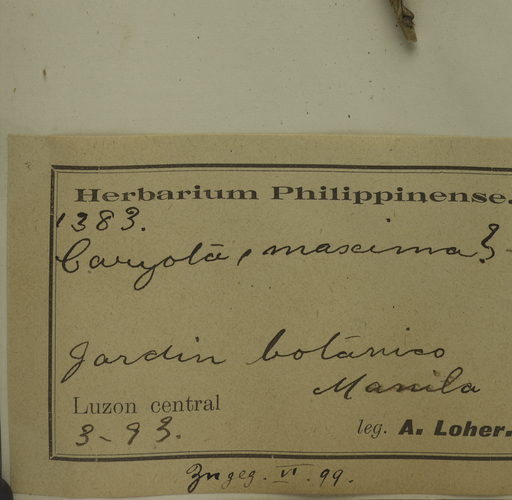 Herbarium Philippinense.
1383.
Caryota, maxima?
Jardin botánico
Manila
Luzon central
3-93.
leg. A. Loher.
Zugeg. VI. 99.